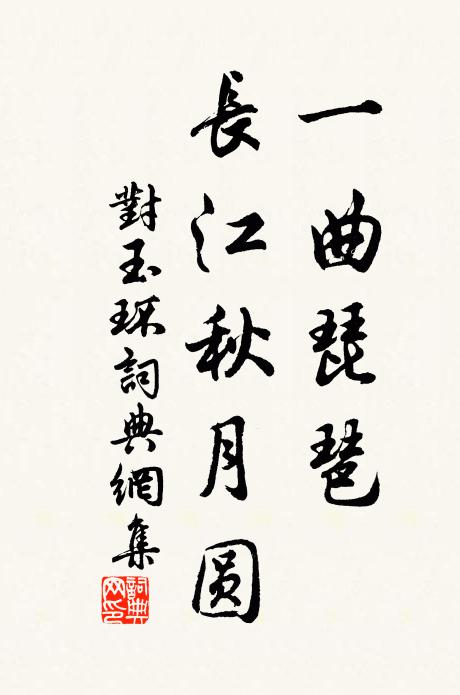 一曲琵琶
長江秋月圆
對玉琢詞典網集
詞典网印